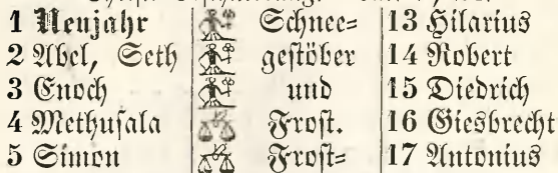 1 Neujahr Schnee= 13 Hilarius
2 Abel, Seth gestöber 14 Robert
3 Enoch und 15 Diedrich
4 Methusala Frost. 16 Giesbrecht
5 Simon Frost= 17 Antonius